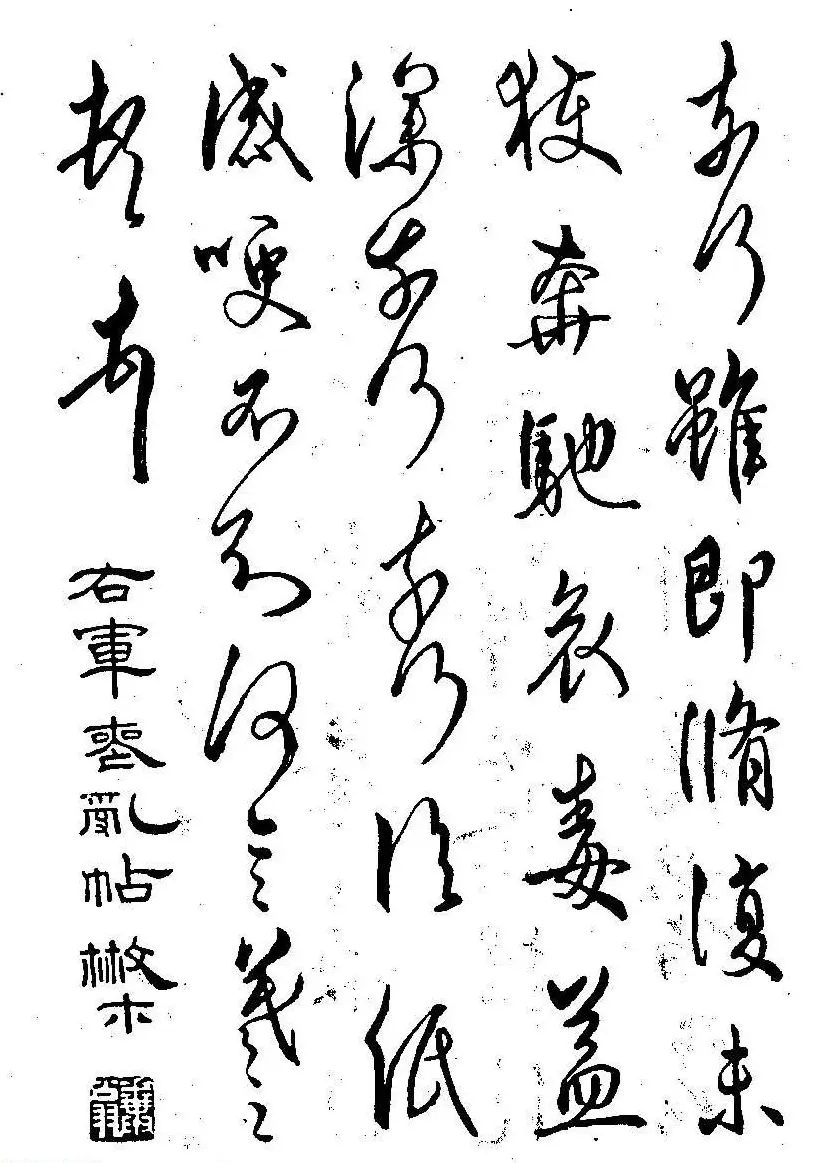 奈何雖即脩復未
獲奔馳哀毒益
深奈何奈何臨紙
感哽不知何言羲之
頓首
右軍喪亂帖 㪔木